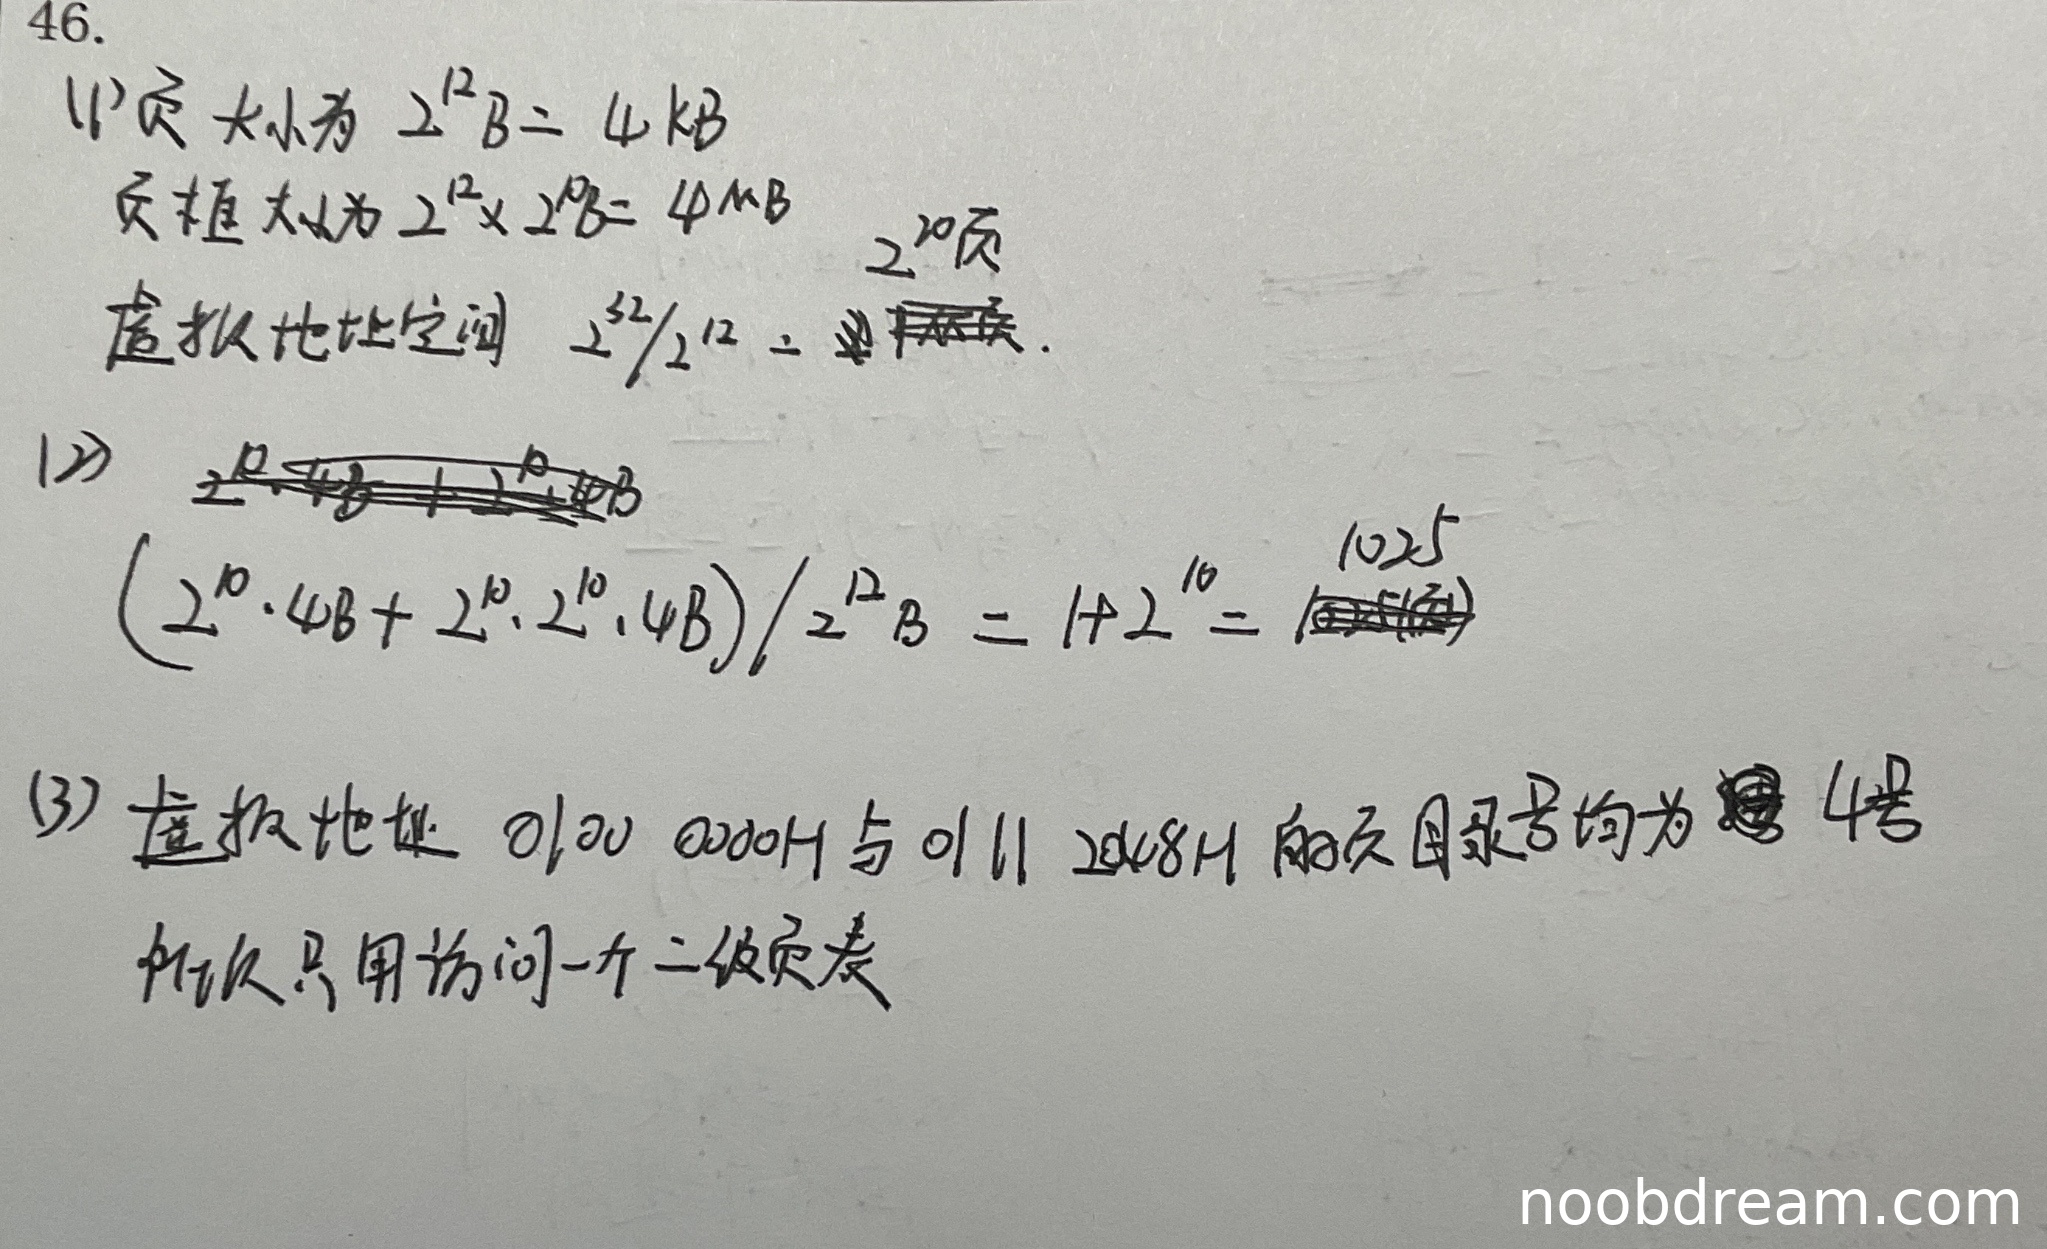 46.
(1) 页大小为 2^12 B = 4 KB
页框大小为 2^12 × 2^10 B = 4 MB
虚拟地址空间 2^32 / 2^12 = 2^20 页 .
(2)
(2^10 · 4B + 2^10 · 2^10 · 4B) / 2^12 B = 1 + 2^10 = 1025
(3) 虚拟地址 0100 0000H 与 0111 2048H 的页目录号均为 4号
所以只用访问一个二级页表
noobdream.com